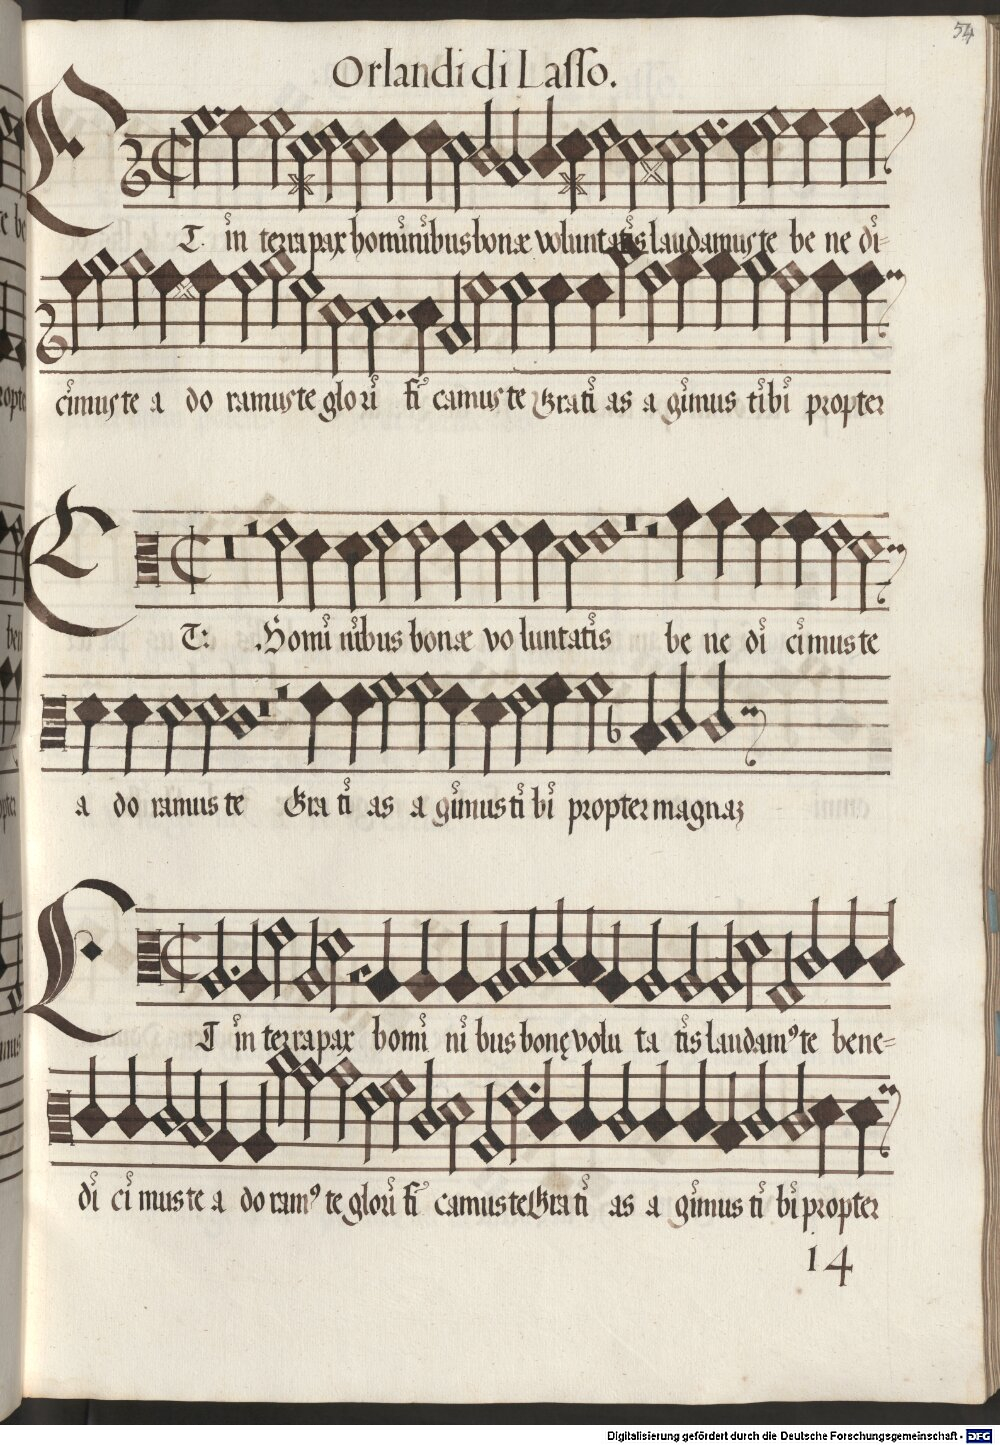 54
Orlandi di Lasso.
ET. in terra pax hominibus bonæ voluntatis laudamus te be ne di=
cimus te a do ramus te glori fi camus te Grati as a gimus tibi propter
ET: .Homi nibus bonæ vo luntatis be ne di cimus te
a do ramus te Gra ti as a gimus ti bi propter magnaz
ET in terra pax homi ni bus bonę volu ta tis laudam⁹ te bene=
di ci mus te a do ram⁹ te glori fi camus te Gra ti as a gimus ti bi propter
14
Digitalisierung gefördert durch die Deutsche Forschungsgemeinschaft - DFG